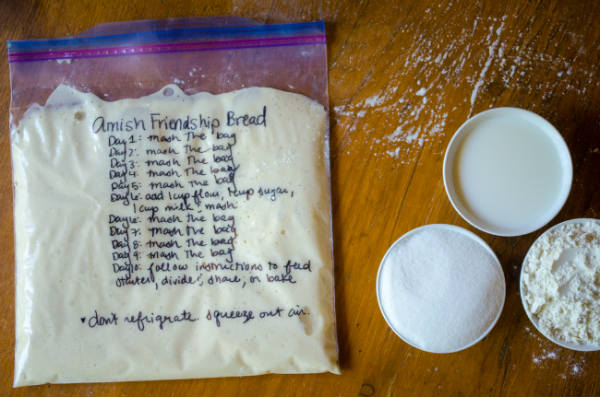 Amish Friendship Bread
Day 1: mash the bag
Day 2: mash the bag
Day 3: mash the bag
Day 4: mash the bag
Day 5: mash the bag
Day 6: add 1 cup flour, 1 cup sugar,
1 cup milk, mash
Day 6: mash the bag
Day 7: mash the bag
Day 8: mash the bag
Day 9: mash the bag
Day 10: follow instructions to feed
starter, divide, share, or bake
♥ don't refrigrate. squeeze out air.